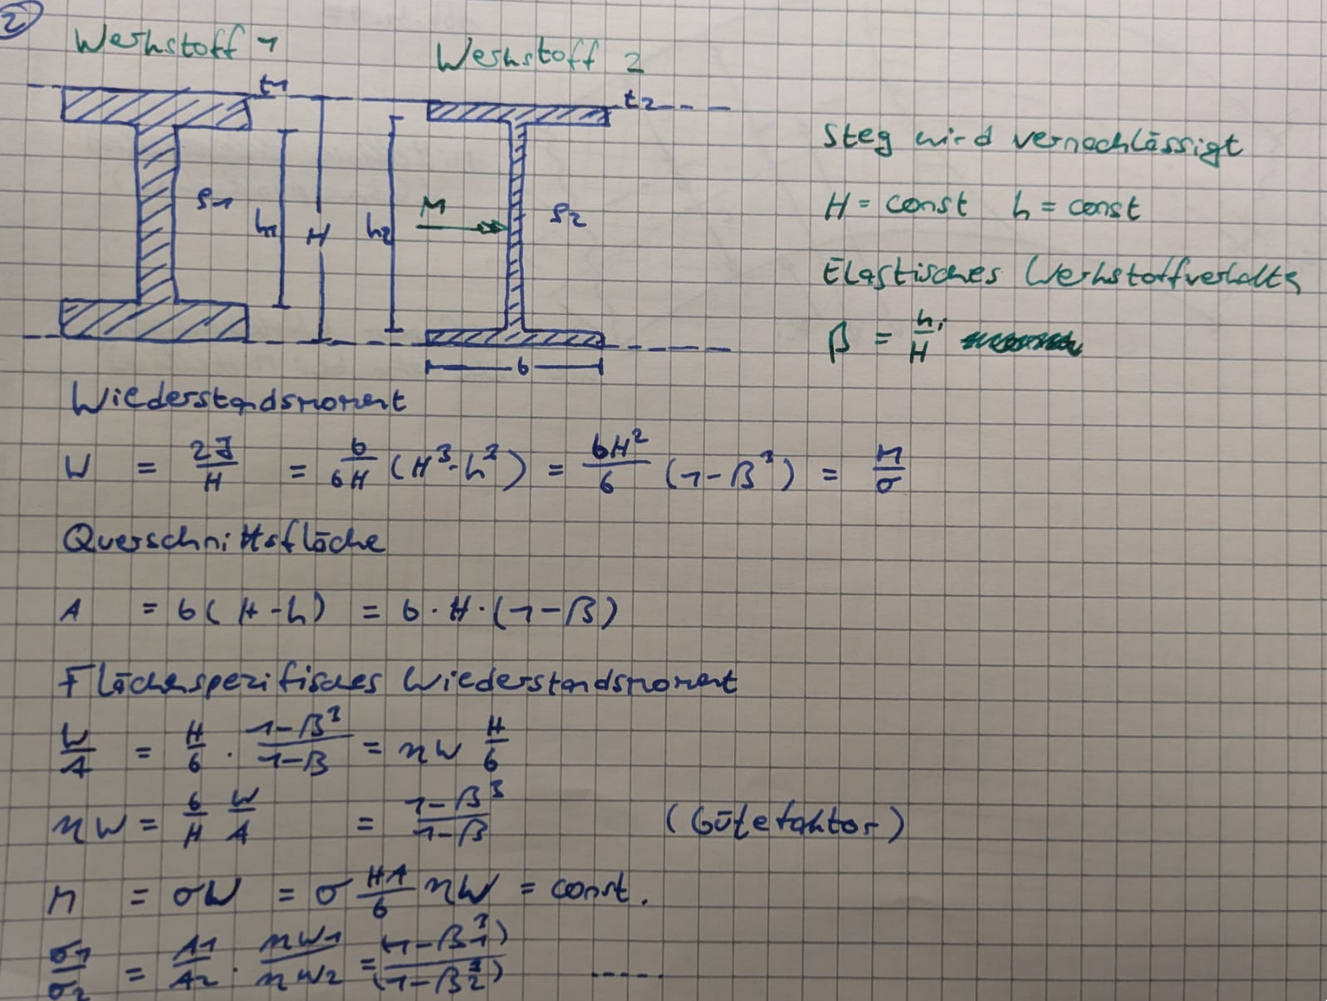 2
Werkstoff 1 Werkstoff 2
t1 t2
ρ1 h1 H h2 M ρ2
b
Steg wird vernachlässigt
H = const h = const
Elastisches Werkstoffverhalts
β = hi/H
Wiederstandsmoment
W = 2J/H = b/6H (H³-h³) = bH²/6 (1-β³) = M/σ
Querschnittsfläche
A = b(H-h) = b·H·(1-β)
Flächenspezifisches Wiederstandsmoment
W/A = H/6 · 1-β³/1-β = ηW H/6
ηW = 6/H W/A = 1-β³/1-β (Gütefaktor)
M = σW = σ HA/6 ηW = const.
σ1/σ2 = A1/A2 · ηW1/ηW2 = (1-β1³)/(1-β2³) .....